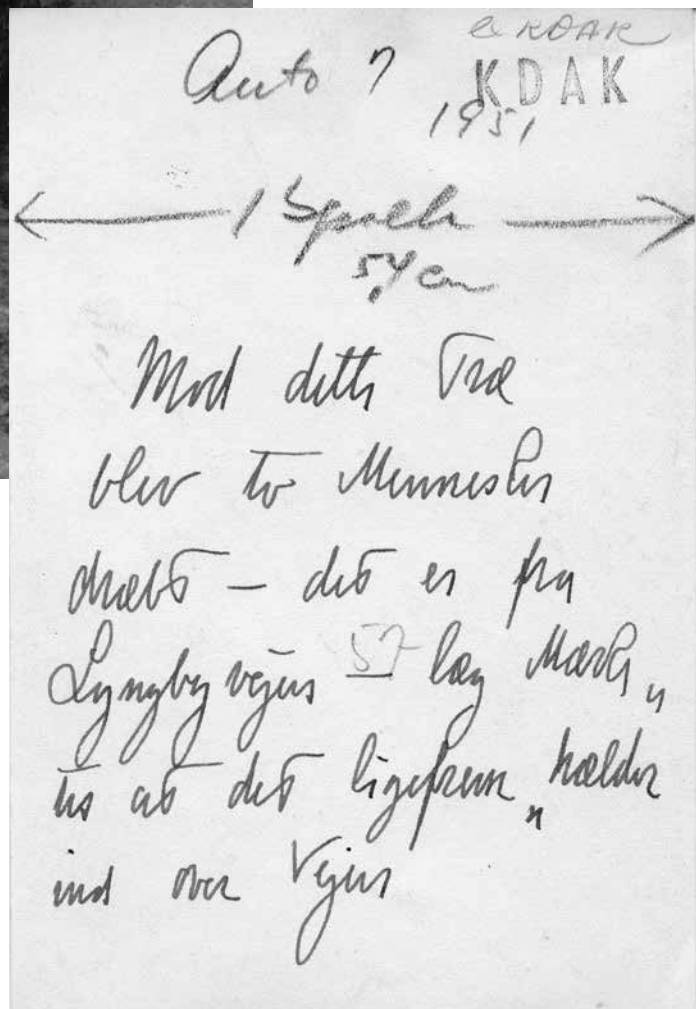 a KDAK
Auto ? KDAK
1951
1 Spalte
5,4 cm
Mod dette Træ
blev to Mennesker
dræbt – det er fra
Lyngbyvejen 57 læg Mærke
til at det ligefrem „hælder„
ind over Vejen